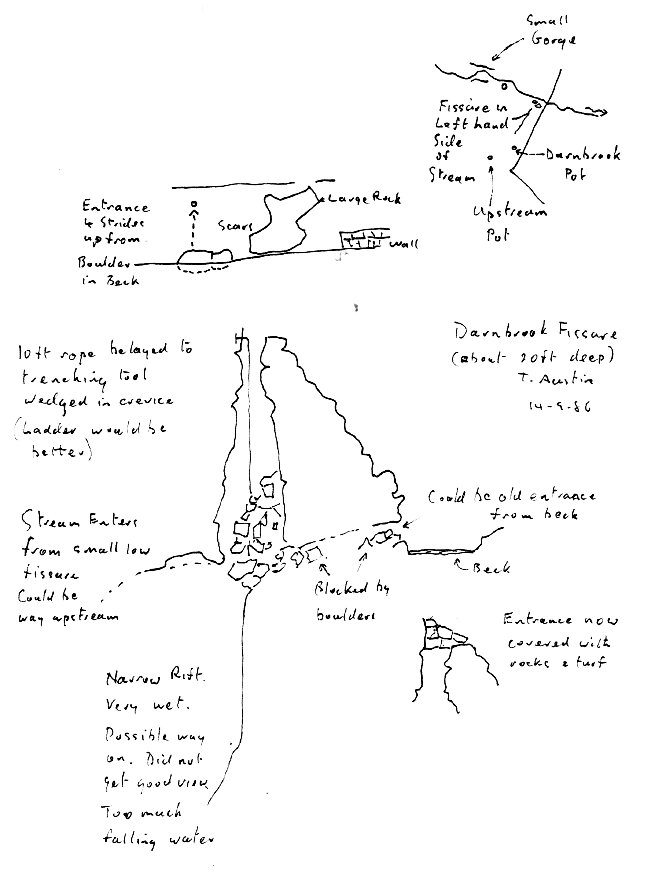 Small
Gorge
Fissure in
Left hand
Side
of
Stream
Darnbrook
Pot
Upstream
Pot
Entrance
4 Strides
up from
Boulder
in Beck
Scars
Large Rock
Wall
Darnbrook Fissure
(about 20ft deep)
T. Austin
14-9-86
10ft rope belayed to
trenching tool
wedged in crevice
(Ladder would be
better)
Could be old entrance
from beck
Stream Enters
from small low
fissure
Could be
way upstream
Beck
Blocked by
boulders
Entrance now
covered with
rocks & turf
Narrow Rift.
Very wet.
Possible way
on. Did not
get good view
Too much
falling water